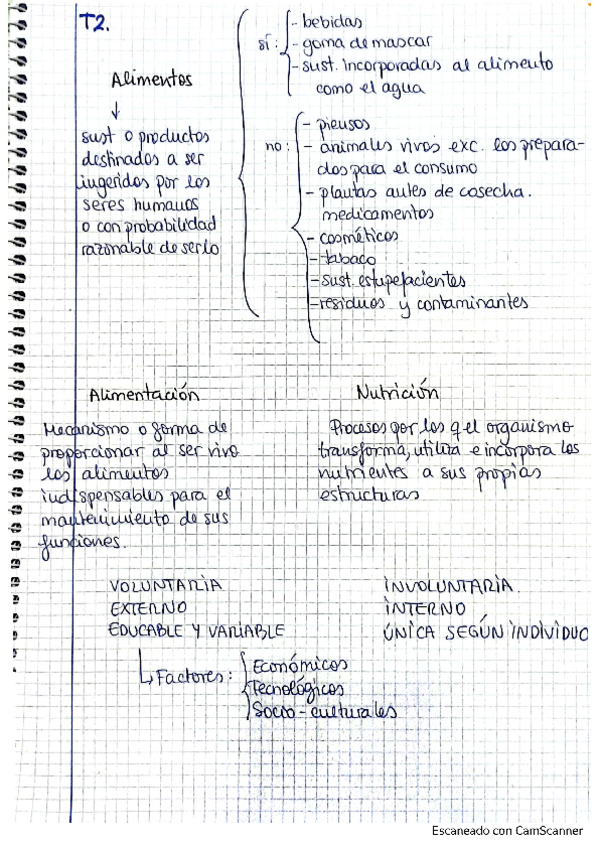 T2.
Alimentos
sust o productos
destinados a ser
ingeridos por los
seres humanos
o con probabilidad
razonable de serlo
sí:
- bebidas
- goma de mascar
- sust. incorporadas al alimento
como el agua
no:
- piensos
- animales vivos exc. los prepara-
dos para el consumo
- plantas antes de cosecha.
medicamentos
- cosméticos
- tabaco
- sust. estupefacientes
- residuos y contaminantes
Alimentación
Mecanismo o forma de
proporcionar al ser vivo
los alimentos
indispensables para el
mantenimiento de sus
funciones.
VOLUNTARIA
EXTERNO
EDUCABLE Y VARIABLE
Factores:
Económicos
Tecnológicos
Socio-culturales
Nutrición
Procesos por los q el organismo
transforma, utiliza e incorpora los
nutrientes a sus propias
estructuras
INVOLUNTARIA.
INTERNO
ÚNICA SEGÚN INDIVIDUO
Escaneado con CamScanner